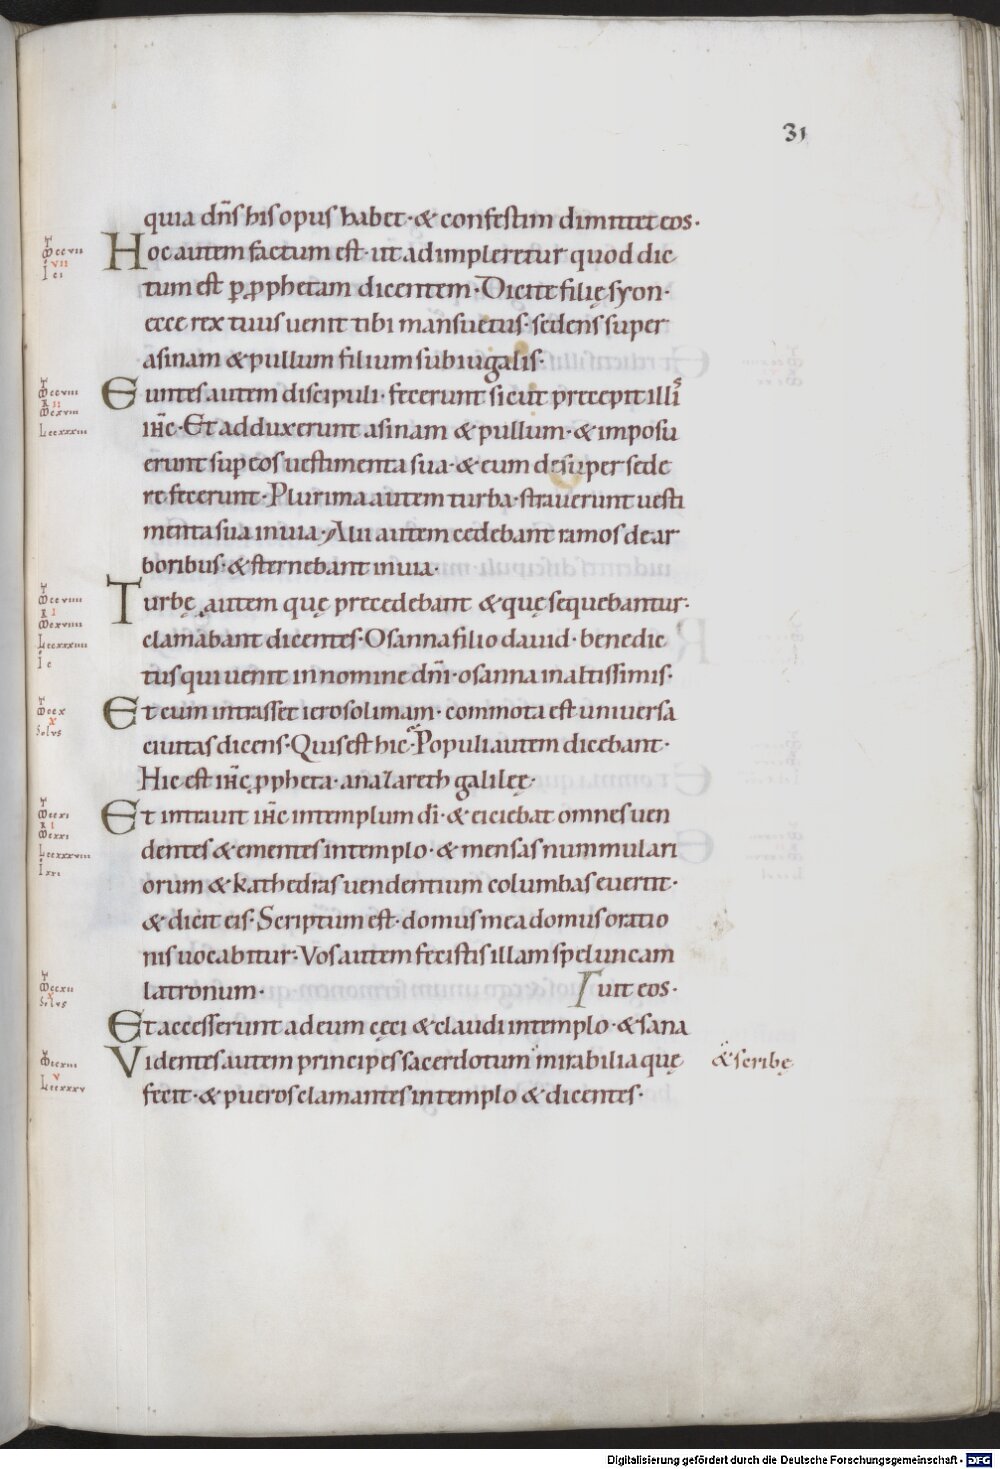 31
quia dn̄s his opus habet· & confestim dimittet eos·
Hoc autem factum est· ut adimpleretur quod dic
tum est p̱ p̱phetam dicentem· Dicite filię syon·
ecce rex tuus uenit tibi mansuetus· sedens super
asinam & pullum filium subiugalis·
Euntes autem discipuli· fecerunt sicut precepit illis
ih̄c· Et adduxerunt asinam & pullum· & imposu
erunt sup̱ eos uestimenta sua· & eum desuper sede
re fecerunt· Plurima autem turba· strauerunt uesti
menta sua in uia· Alii autem cedebant ramos de ar
boribus· & sternebant in uia·
Turbę autem quę precedebant & quę sequebantur·
clamabant dicentes· Osanna filio dauid· benedic
tus qui uenit in nomine dn̄i· osanna in altissimis·
Et cum intrasset ierosolimam· commota est uniuersa
ciuitas dicens· Quis est hic· Populi autem dicebant·
Hic est ih̄c p̱pheta· a nazareth galileę·
Et intrauit ih̄c in templum dī· & eiciebat omnes uen
dentes & ementes in templo· & mensas nummulari
orum & kathedras uendentium columbas euertit·
& dicit eis· Scriptum est· domus mea domus oratio
nis uocabitur· Vos autem fecistis illam speluncam
latronum· uit eos·
Et accesserunt ad eum cęci & claudi in templo· & sana
Videntes autem principes sacerdotum mirabilia quę & scribę
fecit· & pueros clamantes in templo & dicentes·
Digitalisierung gefördert durch die Deutsche Forschungsgemeinschaft - DFG